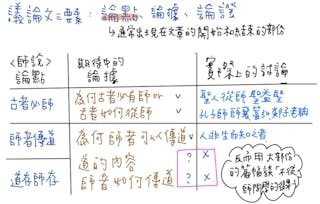 議論文三要素：論點、論據、論證
↳通常出現在文章的開始和結束的部份
<師說>
論點
期待中的
論據
實際的討論
古者必師
為何古者必有師or
古者如何從師
✓
✓
聖人從師聖益聖
孔子師郯子萇弘師襄老聃
師者傳道
為何師者可以傳道
✓
人非生而知之者
道存師存
道的內容
師者如何傳道
?
?
×
×
反而用大部份
的篇幅談「不從
師問學的後果」